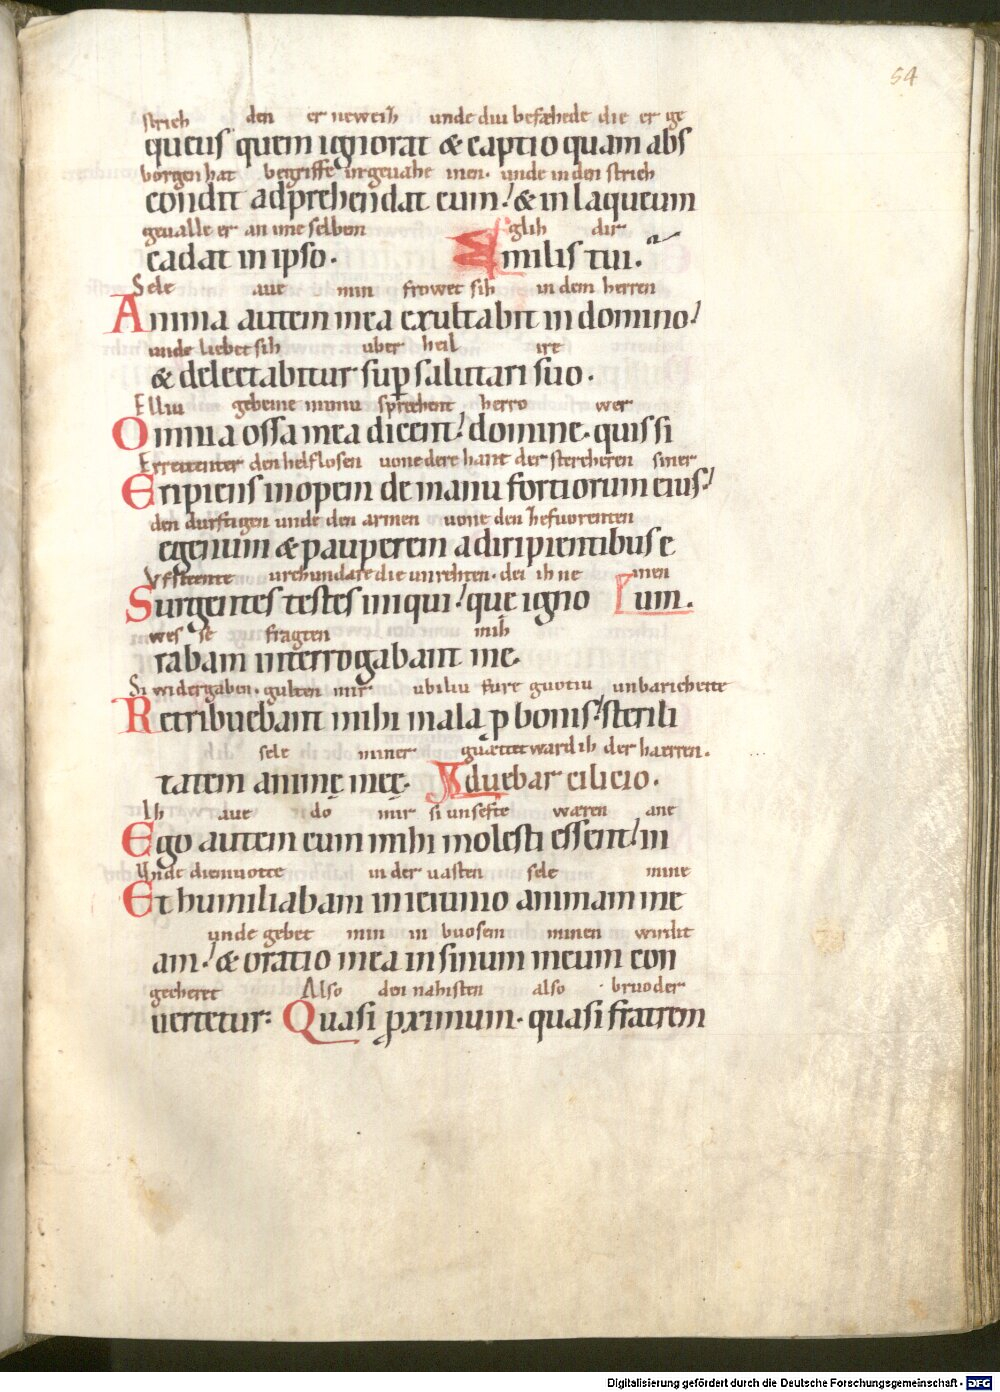 54
strich den er neweih unde diu befæhede die er ge
queus quem ignorat & captio quam abs
borgen hat begriffe in gevahe inen· unde in den strich
condit adprehendat eum! & in laqueum
gevalle er an ime selben glih dir
cadat in ipso· Similis tui·
Sele aue min frowet sih in dem herren
Anima autem mea exultabit in domino!
unde liebet sih uber heil ire
& delectabitur sup salutari suo·
Elliu gebeine miniu sprechent herro wer
Omnia ossa mea dicent! domine· quis si
Errettenter den helflosen vone dere hant der stercheren siner
Eripiens inopem de manu fortiorum eius!
den durftigen unde den armen vone den hefuorenten
egenum & pauperem a diripientibus e
Vfsteente urchundare die unrehten· dei ih ne inen
Surgentes testes iniqui! que igno um·
wes se fragten mih
rabam interrogabant me·
Si widergaben· gulten mir ubiliu fure guotiu unbarichette
Retribuebant mihi mala p bonis! sterili
sele miner guættet ward ih der haerren·
tatem animę meę· Induebar cilicio·
Ih aue do mir si unsefte wæren ane
Ego autem cum mihi molesti essent! in
Unde diemuotte in der vasten sele mine
Et humiliabam in ieiunio animam me
unde gebet min in buosem minen wirdit
am! & oratio mea in sinum meum con
gecheret Also den nahisten also bruoder
uertetur: Quasi proximum· quasi fratrem
Digitalisierung gefördert durch die Deutsche Forschungsgemeinschaft - DFG